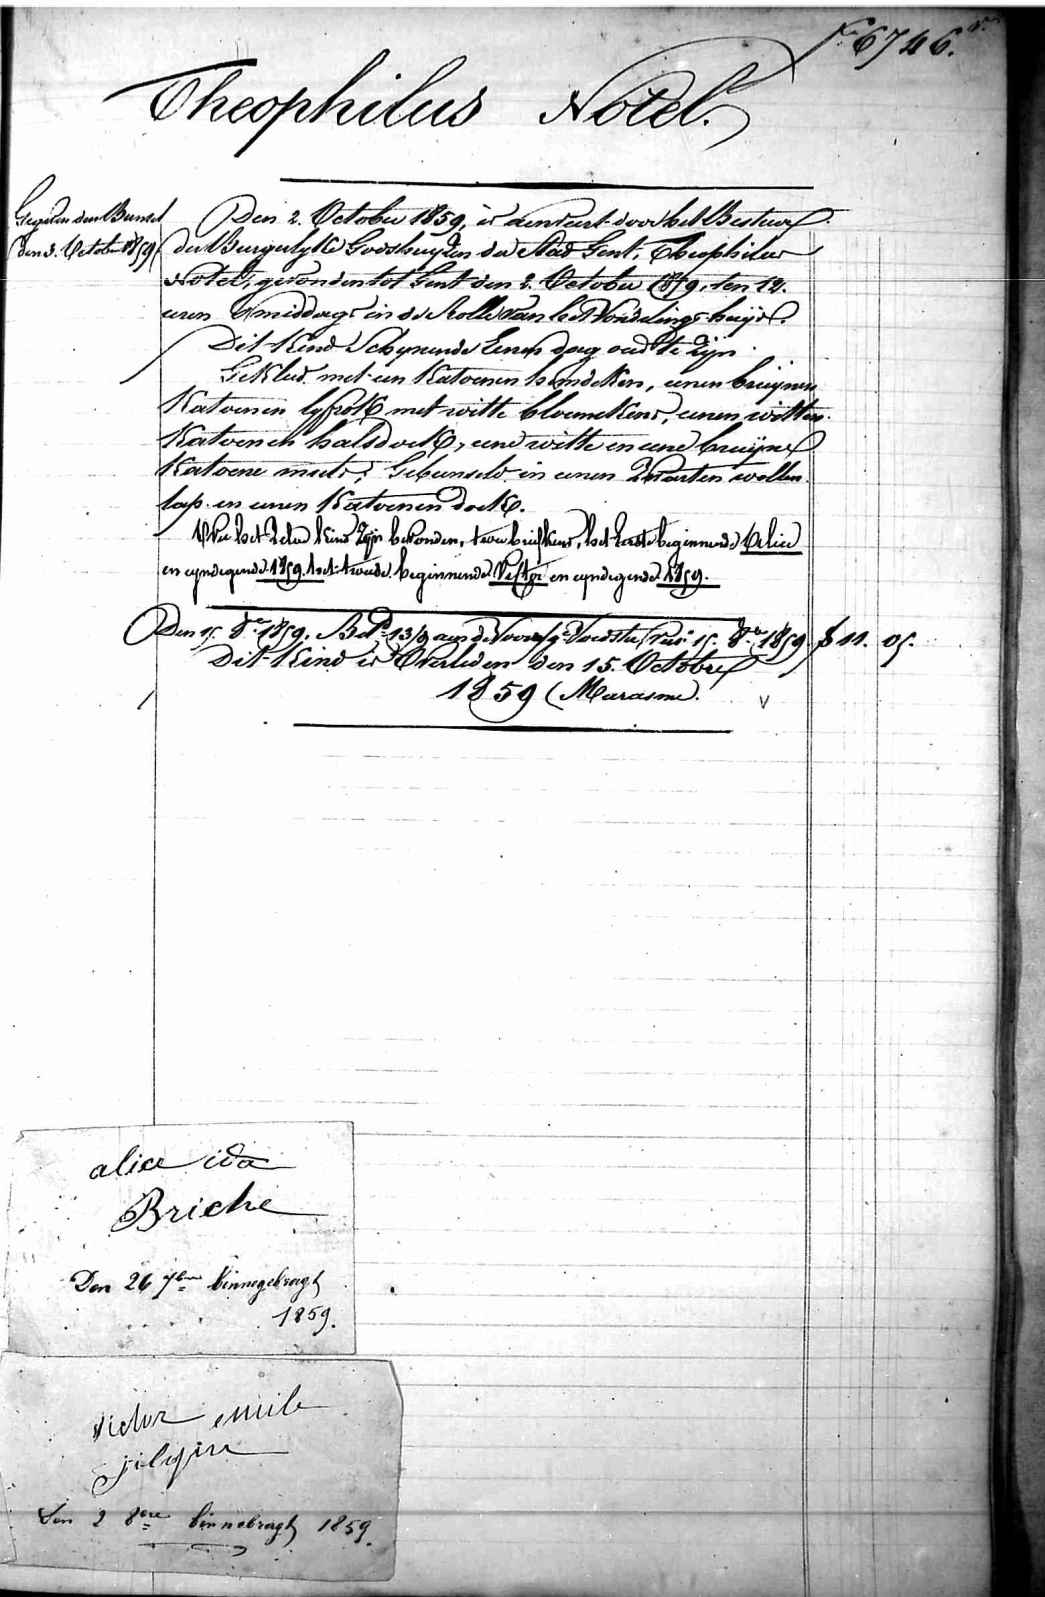 N° 6746.
Theophilus Notel.
den 3. October 1859
Den 2. October 1859, is aenveert door het Bestuur
der Burgerlyke Godshuyzen der Stad Gent, Theophilus
Notel, gevonden tot Gent den 2. October 1859, ten 12.
uren smiddags in de Rolle van het Vondelings-huys.
Dit Kind Schynende Eenen dag oud te zyn.
Gekleed met een Katoenen hemdeken, eenen bruynen
Katoenen lyfrok met witte bloemekens, eenen witten
Katoenen halsdoek, eene witte en eene bruyne
Katoene muts; Gebunseld in eenen Zwarten wollen
lap en eenen Katoenen doek.
het Zelve Kind Zyn bevonden, twee briefkens, het Eerste beginnende Alice
en eyndigende 1859. het tweede beginnende Victor en eyndigende 1859.
Den 15. 8re 1859. 15. 8re 1859. 11. 05.
Dit Kind is Overleden den 15. October
1859 (Marasme).
alice ida
Briche
Den 26 7bre binnegebragt
1859.
victor emile
Den 2 8bre binnebragt 1859.